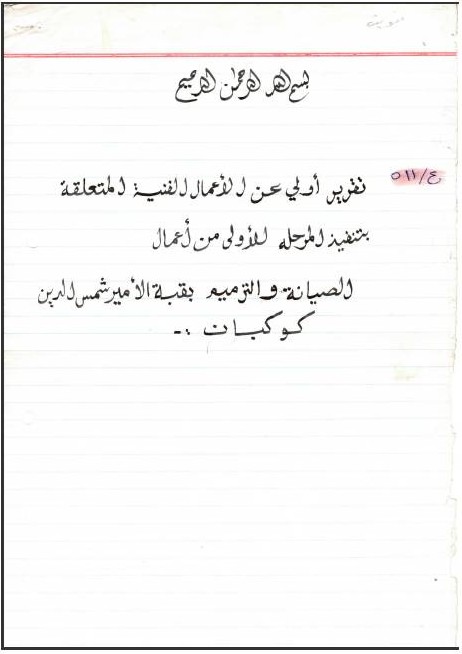 بسم الله الرحمن الرحيم
ع/٥١١
تقرير أولي عن الأعمال الفنية المتعلقة
بتنفيذ المرحله الأولى من أعمال
الصيانة والترميم بقبة الأمير شمس الدين
كوكبان :-